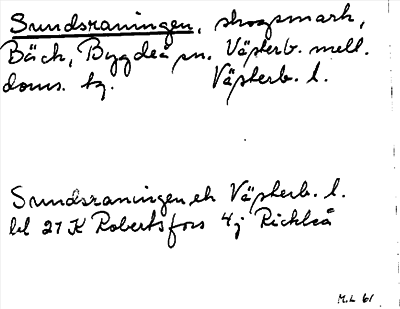 Sundsraningen, skogsmark,
Bäck, Bygdeå sn. Västerb. mell.
doms. tg. Västerb. l.
Sundsraningen, ek Västerb. l.
bl 21 K Robertsfors 4j Rickleå
M.L 61